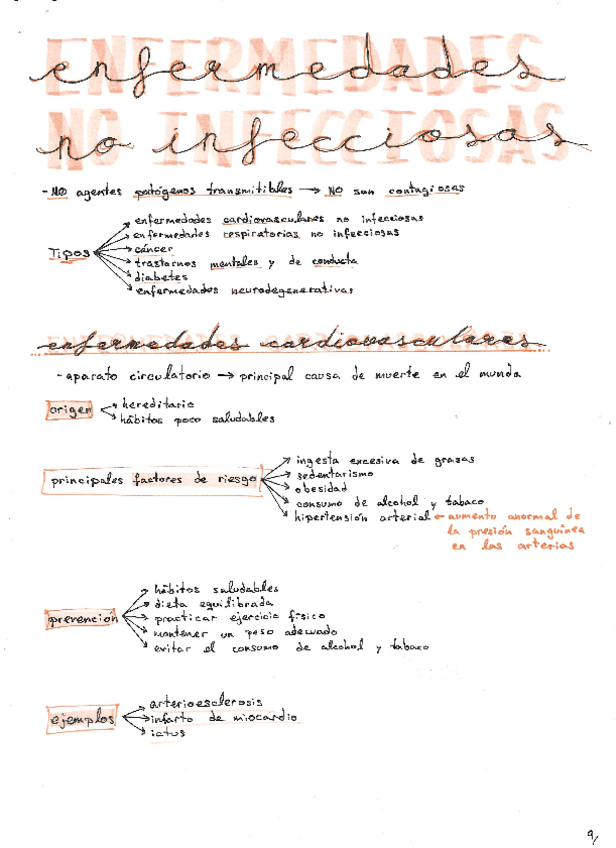 enfermedades
no infecciosas
- NO agentes patógenos transmitibles → NO son contagiosas
Tipos
enfermedades cardiovasculares no infecciosas
enfermedades respiratorias no infecciosas
cáncer
trastornos mentales y de conducta
diabetes
enfermedades neurodegenerativas
enfermedades cardiovasculares
- aparato circulatorio → principal causa de muerte en el mundo
origen
hereditario
hábitos poco saludables
principales factores de riesgo
ingesta excesiva de grasas
sedentarismo
obesidad
consumo de alcohol y tabaco
hipertensión arterial ← aumento anormal de
la presión sanguínea
en las arterias
prevención
hábitos saludables
dieta equilibrada
practicar ejercicio físico
mantener un peso adecuado
evitar el consumo de alcohol y tabaco
ejemplos
arterioesclerosis
infarto de miocardio
ictus
9/